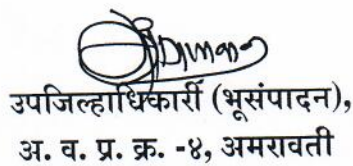 उपजिल्हाधिकारी (भूसंपादन),
अ. व. प्र. क्र. -४, अमरावती